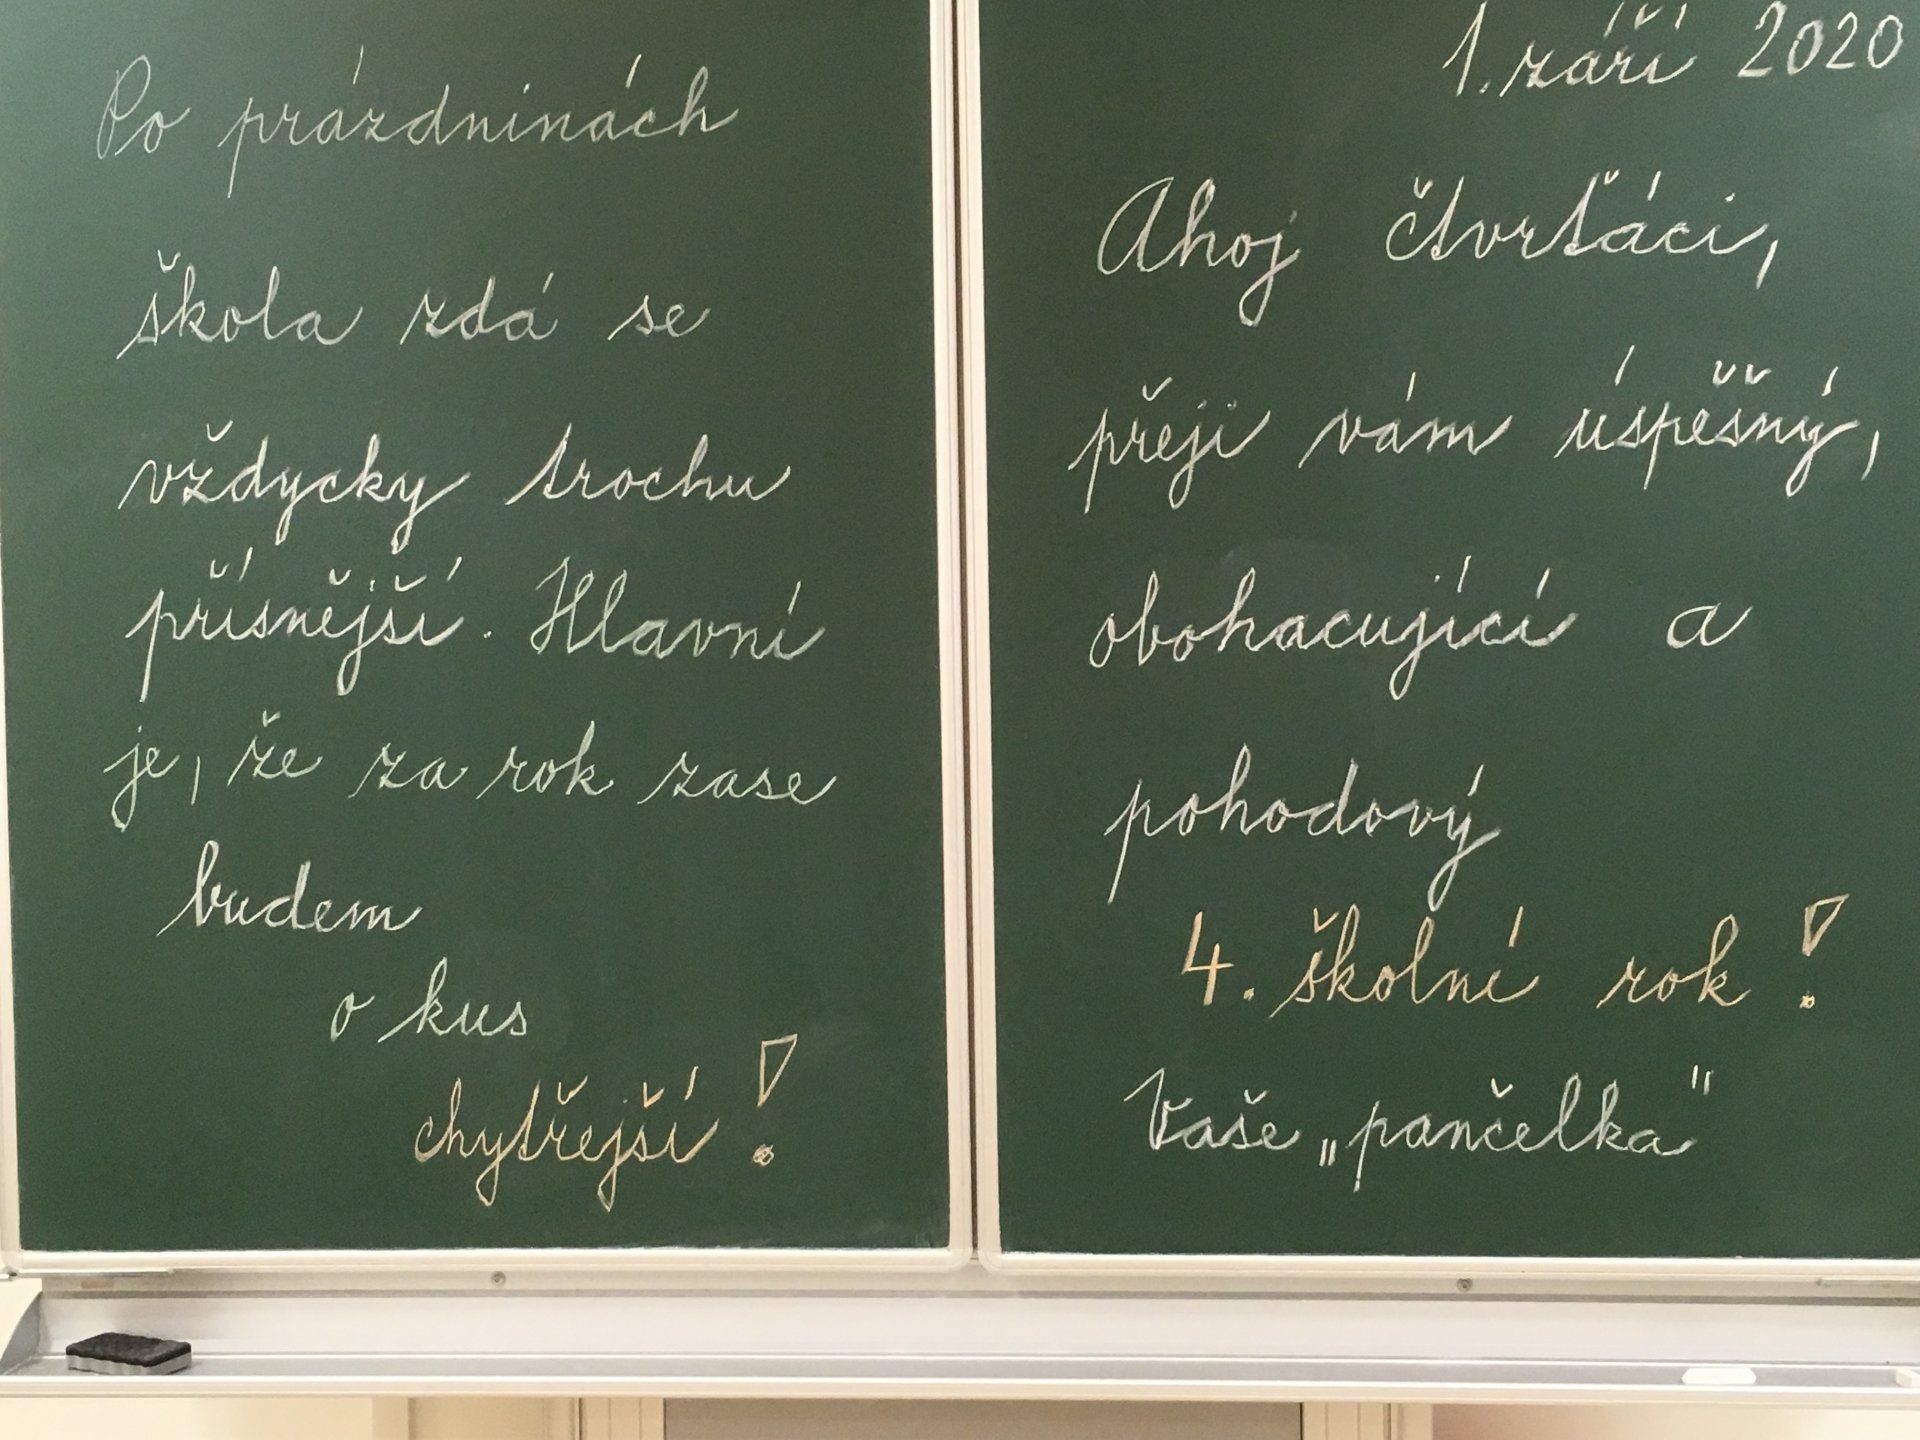 Po prázdninách
škola zdá se
vždycky trochu
přísnější. Hlavní
je, že za rok zase
budem
o kus
chytřejší!
1. září 2020
Ahoj čtvrťáci,
přeji vám úspěšný,
obohacující a
pohodový
4. školní rok!
Vaše „pančelka"